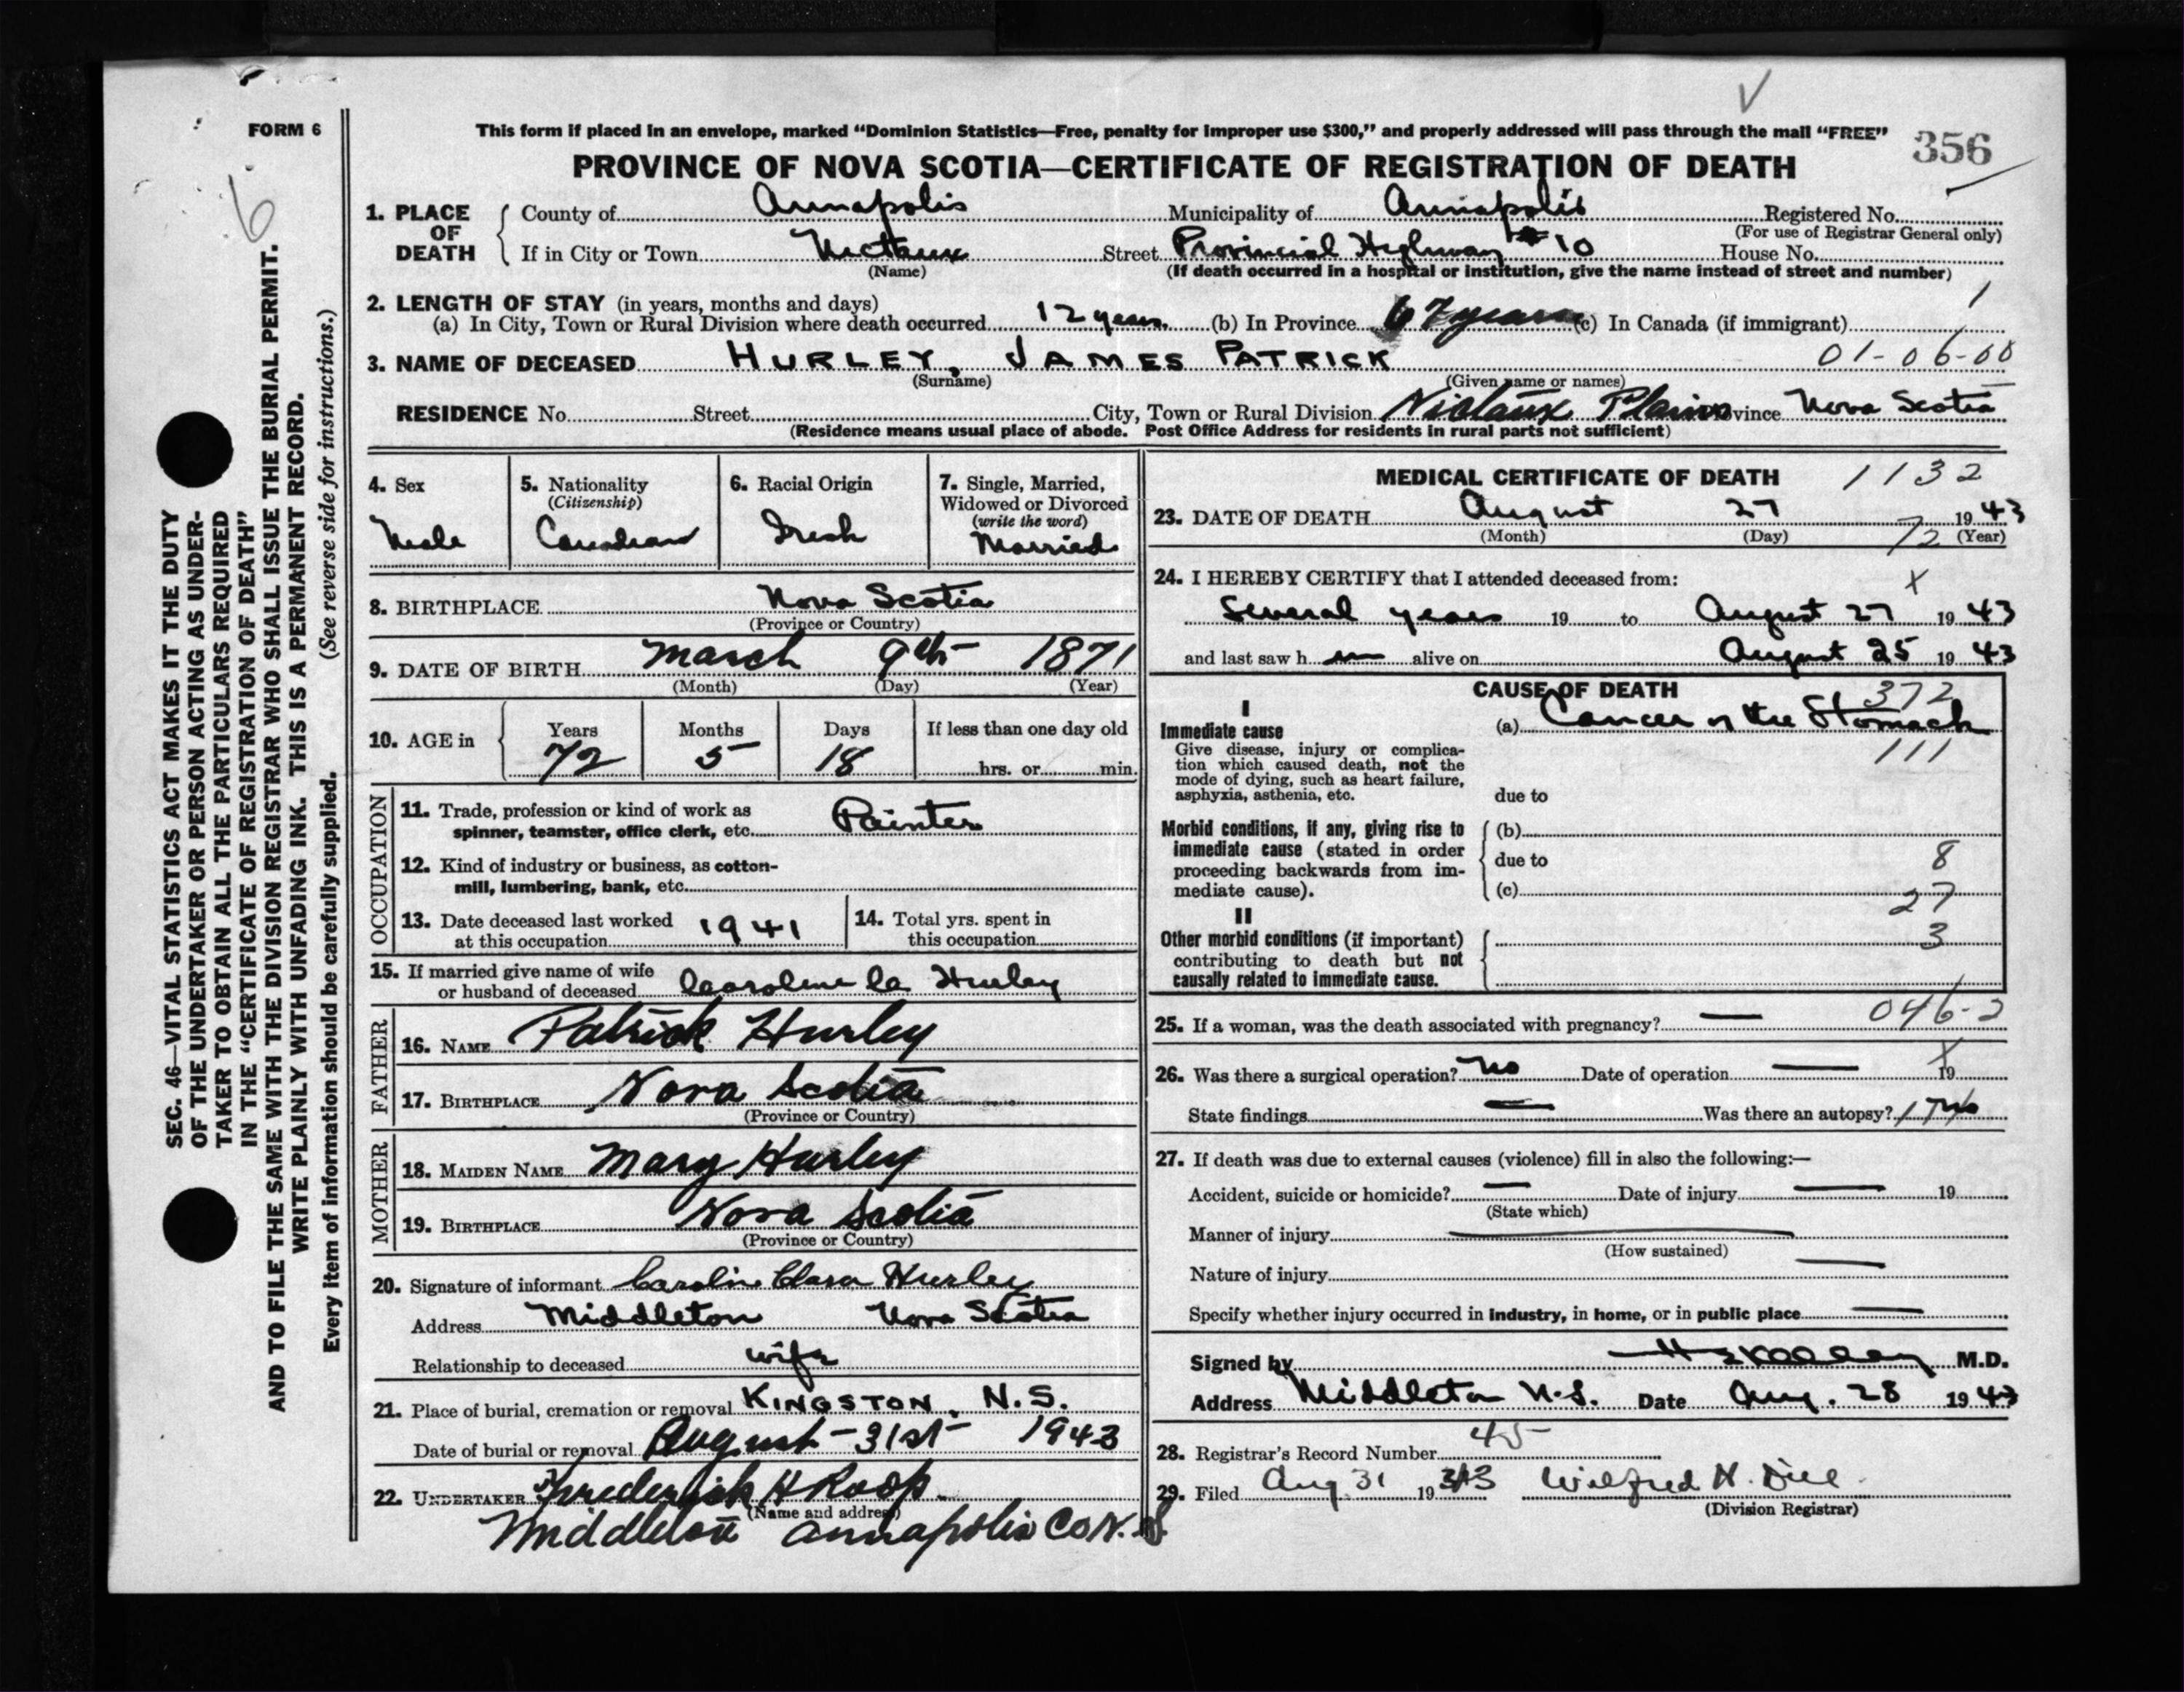 FORM 6
This form if placed in an envelope, marked “Dominion Statistics—Free, penalty for improper use $300,” and properly addressed will pass through the mail “FREE”
356
PROVINCE OF NOVA SCOTIA—CERTIFICATE OF REGISTRATION OF DEATH
6
1. PLACE OF DEATH
County of Annapolis Municipality of Annapolis Registered No.
(For use of Registrar General only)
If in City or Town Nictaux Street Provincial Highway #10 House No.
(Name) (If death occurred in a hospital or institution, give the name instead of street and number)
2. LENGTH OF STAY (in years, months and days)
1
(a) In City, Town or Rural Division where death occurred 12 years (b) In Province 67 years (c) In Canada (if immigrant)
01-06-00
3. NAME OF DECEASED HURLEY, JAMES PATRICK
(Surname) (Given name or names)
RESIDENCE No. Street City, Town or Rural Division Nictaux Plains Province Nova Scotia
(Residence means usual place of abode. Post Office Address for residents in rural parts not sufficient)
4. Sex
Male
5. Nationality
(Citizenship)
Canadian
6. Racial Origin
Irish
7. Single, Married,
Widowed or Divorced
(write the word)
Married
8. BIRTHPLACE Nova Scotia
(Province or Country)
9. DATE OF BIRTH March 9th 1871
(Month) (Day) (Year)
10. AGE in
Years Months Days If less than one day old
72 5 18 hrs. or min.
OCCUPATION
11. Trade, profession or kind of work as
spinner, teamster, office clerk, etc. Painter
12. Kind of industry or business, as cotton-
mill, lumbering, bank, etc.
13. Date deceased last worked
at this occupation 1941
14. Total yrs. spent in
this occupation
15. If married give name of wife
or husband of deceased Caroline Ca Hurley
FATHER
16. NAME Patrick Hurley
17. BIRTHPLACE Nova Scotia
(Province or Country)
MOTHER
18. MAIDEN NAME Mary Hurley
19. BIRTHPLACE Nova Scotia
(Province or Country)
20. Signature of informant Carolin Clara Hurley
Address Middleton Nova Scotia
Relationship to deceased wife
21. Place of burial, cremation or removal KINGSTON, N.S.
Date of burial or removal August-31st 1943
22. UNDERTAKER Frederick H Roop
(Name and address)
Middleton Annapolis Co N.S.
MEDICAL CERTIFICATE OF DEATH 1132
23. DATE OF DEATH August 27 1943
(Month) (Day) 72 (Year)
24. I HEREBY CERTIFY that I attended deceased from: x
Several years 19 to August 27 1943
and last saw h im alive on August 25 1943
CAUSE OF DEATH 372
I
Immediate cause
(a) Cancer of the Stomach
Give disease, injury or complica-
tion which caused death, not the
mode of dying, such as heart failure,
asphyxia, asthenia, etc.
111
due to
Morbid conditions, if any, giving rise to
immediate cause (stated in order
proceeding backwards from im-
mediate cause).
(b)
due to 8
(c) 27
II
Other morbid conditions (if important)
contributing to death but not
causally related to immediate cause.
3
046-2
25. If a woman, was the death associated with pregnancy? —
26. Was there a surgical operation? No Date of operation — 19 x
State findings — Was there an autopsy? No
27. If death was due to external causes (violence) fill in also the following:—
Accident, suicide or homicide? — Date of injury — 19
(State which)
Manner of injury —
(How sustained)
Nature of injury —
Specify whether injury occurred in industry, in home, or in public place —
Signed by M.D.
Address Middleton N.S. Date Aug. 28 1943
28. Registrar's Record Number 45
29. Filed Aug 31 1943 Wilfred H. Dill
(Division Registrar)
SEC. 46—VITAL STATISTICS ACT MAKES IT THE DUTY
OF THE UNDERTAKER OR PERSON ACTING AS UNDER-
TAKER TO OBTAIN ALL THE PARTICULARS REQUIRED
IN THE “CERTIFICATE OF REGISTRATION OF DEATH”
AND TO FILE THE SAME WITH THE DIVISION REGISTRAR WHO SHALL ISSUE THE BURIAL PERMIT.
WRITE PLAINLY WITH UNFADING INK. THIS IS A PERMANENT RECORD.
Every item of information should be carefully supplied. (See reverse side for instructions.)